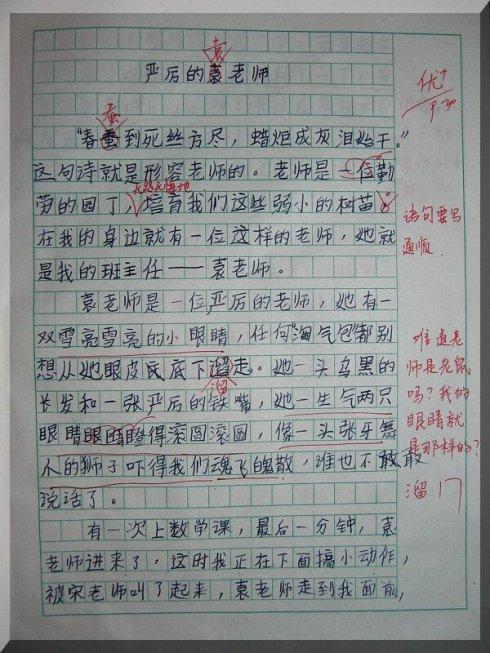 袁
严厉的袁老师
优+
9.30
蚕
“春蚕到死丝方尽，蜡炬成灰泪始干。”
这句诗就是形容老师的。老师是一位勤
无怨无悔地
劳的园丁，培育我们这些弱小的树苗。
语句要写
通顺
在我的身边就有一位这样的老师，她就
是我的班主任——袁老师。
袁老师是一位严厉的老师，她有一
双雪亮雪亮的小眼睛，任何“淘气包”都别
想从她眼皮底下溜走。她一头乌黑的
溜
长发和一张严厉的铁嘴，她一生气两只
眼睛瞪得滚圆滚圆，像一头张牙舞
爪的狮子吓得我们魂飞魄散，谁也不敢
说话了。
难道老
师是老鼠
吗？我的
眼睛就
是那样的？
溜门
有一次上数学课，最后一分钟，袁
老师进来了，这时我正在下面搞小动作，
被宋老师叫了起来，袁老师走到我面前，